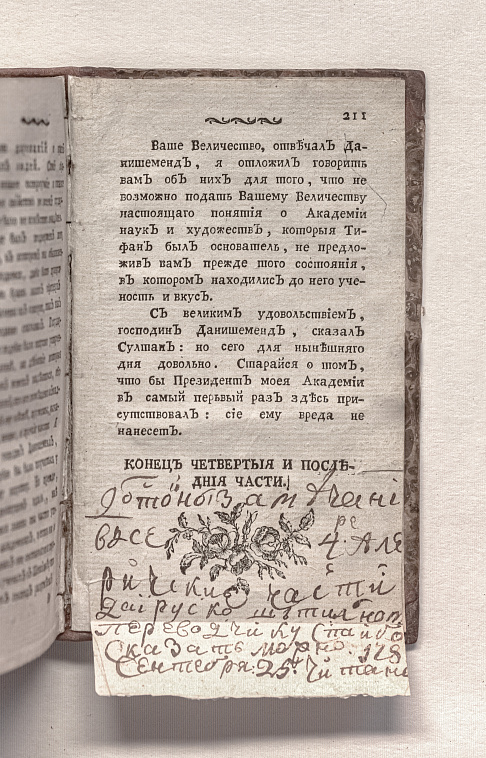 211
Ваше Величество, отвѣчалЪ Да-
нишемендЪ, я отложилЪ говорить
вамЪ обЪ нихЪ для того, что не
возможно подать Вашему Величеству
настоящаго понятія о Академіи
наукЪ и художествЪ, которыя Ти-
фанЪ былЪ основатель, не предло-
живЪ вамЪ прежде того состоянія,
вЪ которомЪ находились до него уче-
ность и вкусЪ.
СЪ великимЪ удовольствіемЪ,
господинЪ ДанишемендЪ, сказалЪ
СултанЪ: но сего для нынѣшняго
дня довольно. Старайся о томЪ,
что бы ПрезидентЪ моея Академіи
вЪ самый первый разЪ здѣсь при-
сутствовалЪ: сіе ему вреда не
нанесетЪ.
КОНЕЦЪ ЧЕТВЕРТЫЯ И ПОСЛѢ-
ДНІЯ ЧАСТИ.
4
части
переводчику
Сказать можно
Сентебря 25